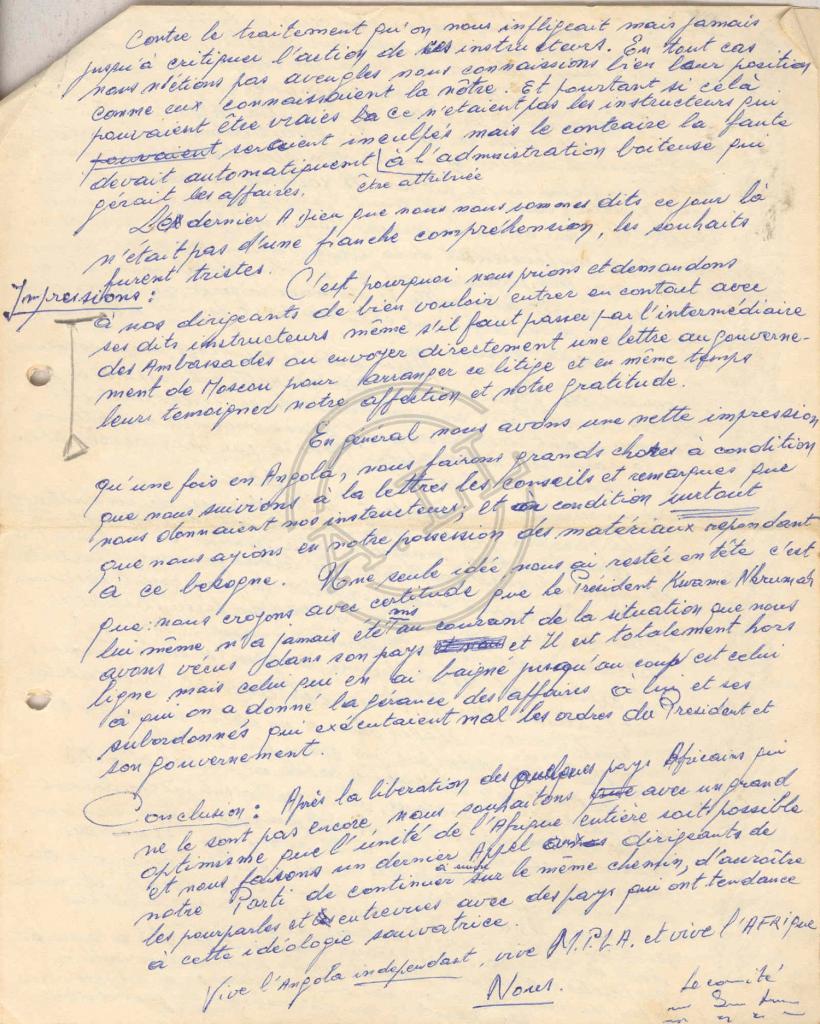 Contre le traitement qu'on nous infligeait mais jamais
jusqu'à critiquer l'action de ces instructeurs. En tout cas
nous n'étions pas aveugles nous connaissions bien leur position
comme eux connaissaient la nôtre. Et pourtant si celà
pouvaient être vraies ce n'étaient pas les instructeurs qui
pouvaient seraient inculpés mais le contraire la faute
devait automatiquement être attribuée à l'admnistration boiteuse qui
gérait les affaires.
Le dernier Adieu que nous nous sommes dits ce jour là
n'était pas d'une franche compréhension, les souhaits
furent tristes.
Impressions : C'est pourquoi nous prions et demandons
à nos dirigeants de bien vouloir entrer en contact avec
ses dits instructeurs même s'il faut passer par l'intermédiaire
des Ambassades ou envoyer directement une lettre au gouverne-
ment de Moscou pour arranger ce litige et en même temps
leurs temoigner notre affection et notre gratitude.
En général nous avons une nette impression
qu'une fois en Angola, nous fairons grands choses à condition
que nous suivions à la lettres les conseils et remarques que
nous donnaient nos instructeurs; et condition surtout
que nous ayions en notre possession des matériaux repondant
à ce besogne. Une seule idée nous ai restée en tête c'est
que: nous croyons avec certitude que le Président Kwame Nkrumah
lui même n'a jamais été mis au courant de la situation que nous
avons vécus dans son pays et Il est totalement hors
ligne mais celui qui en ai baigné jusqu'au coup est celui
à qui on a donné la gérance des affaires à lui et ses
subordonnés qui exécutaient mal les ordres du President et
son gouvernement.
Conclusion : Après la liberation des quelques pays Africains qui
ne le sont pas encore nous souhaitons avec un grand
optimisme que l'unité de l'Afrique entière soit possible
et nous faisons un dernier Appel aux dirigeants de
notre Parti de continuer à suivre sur le même chemin, d'accroître
les pourparles et entrevues avec des pays qui ont tendance
à cette idéologie sauvatrice.
Vive l'Angola independant, vive M.P.L.A. et vive l'AFRIQUE
Nous. Le comité